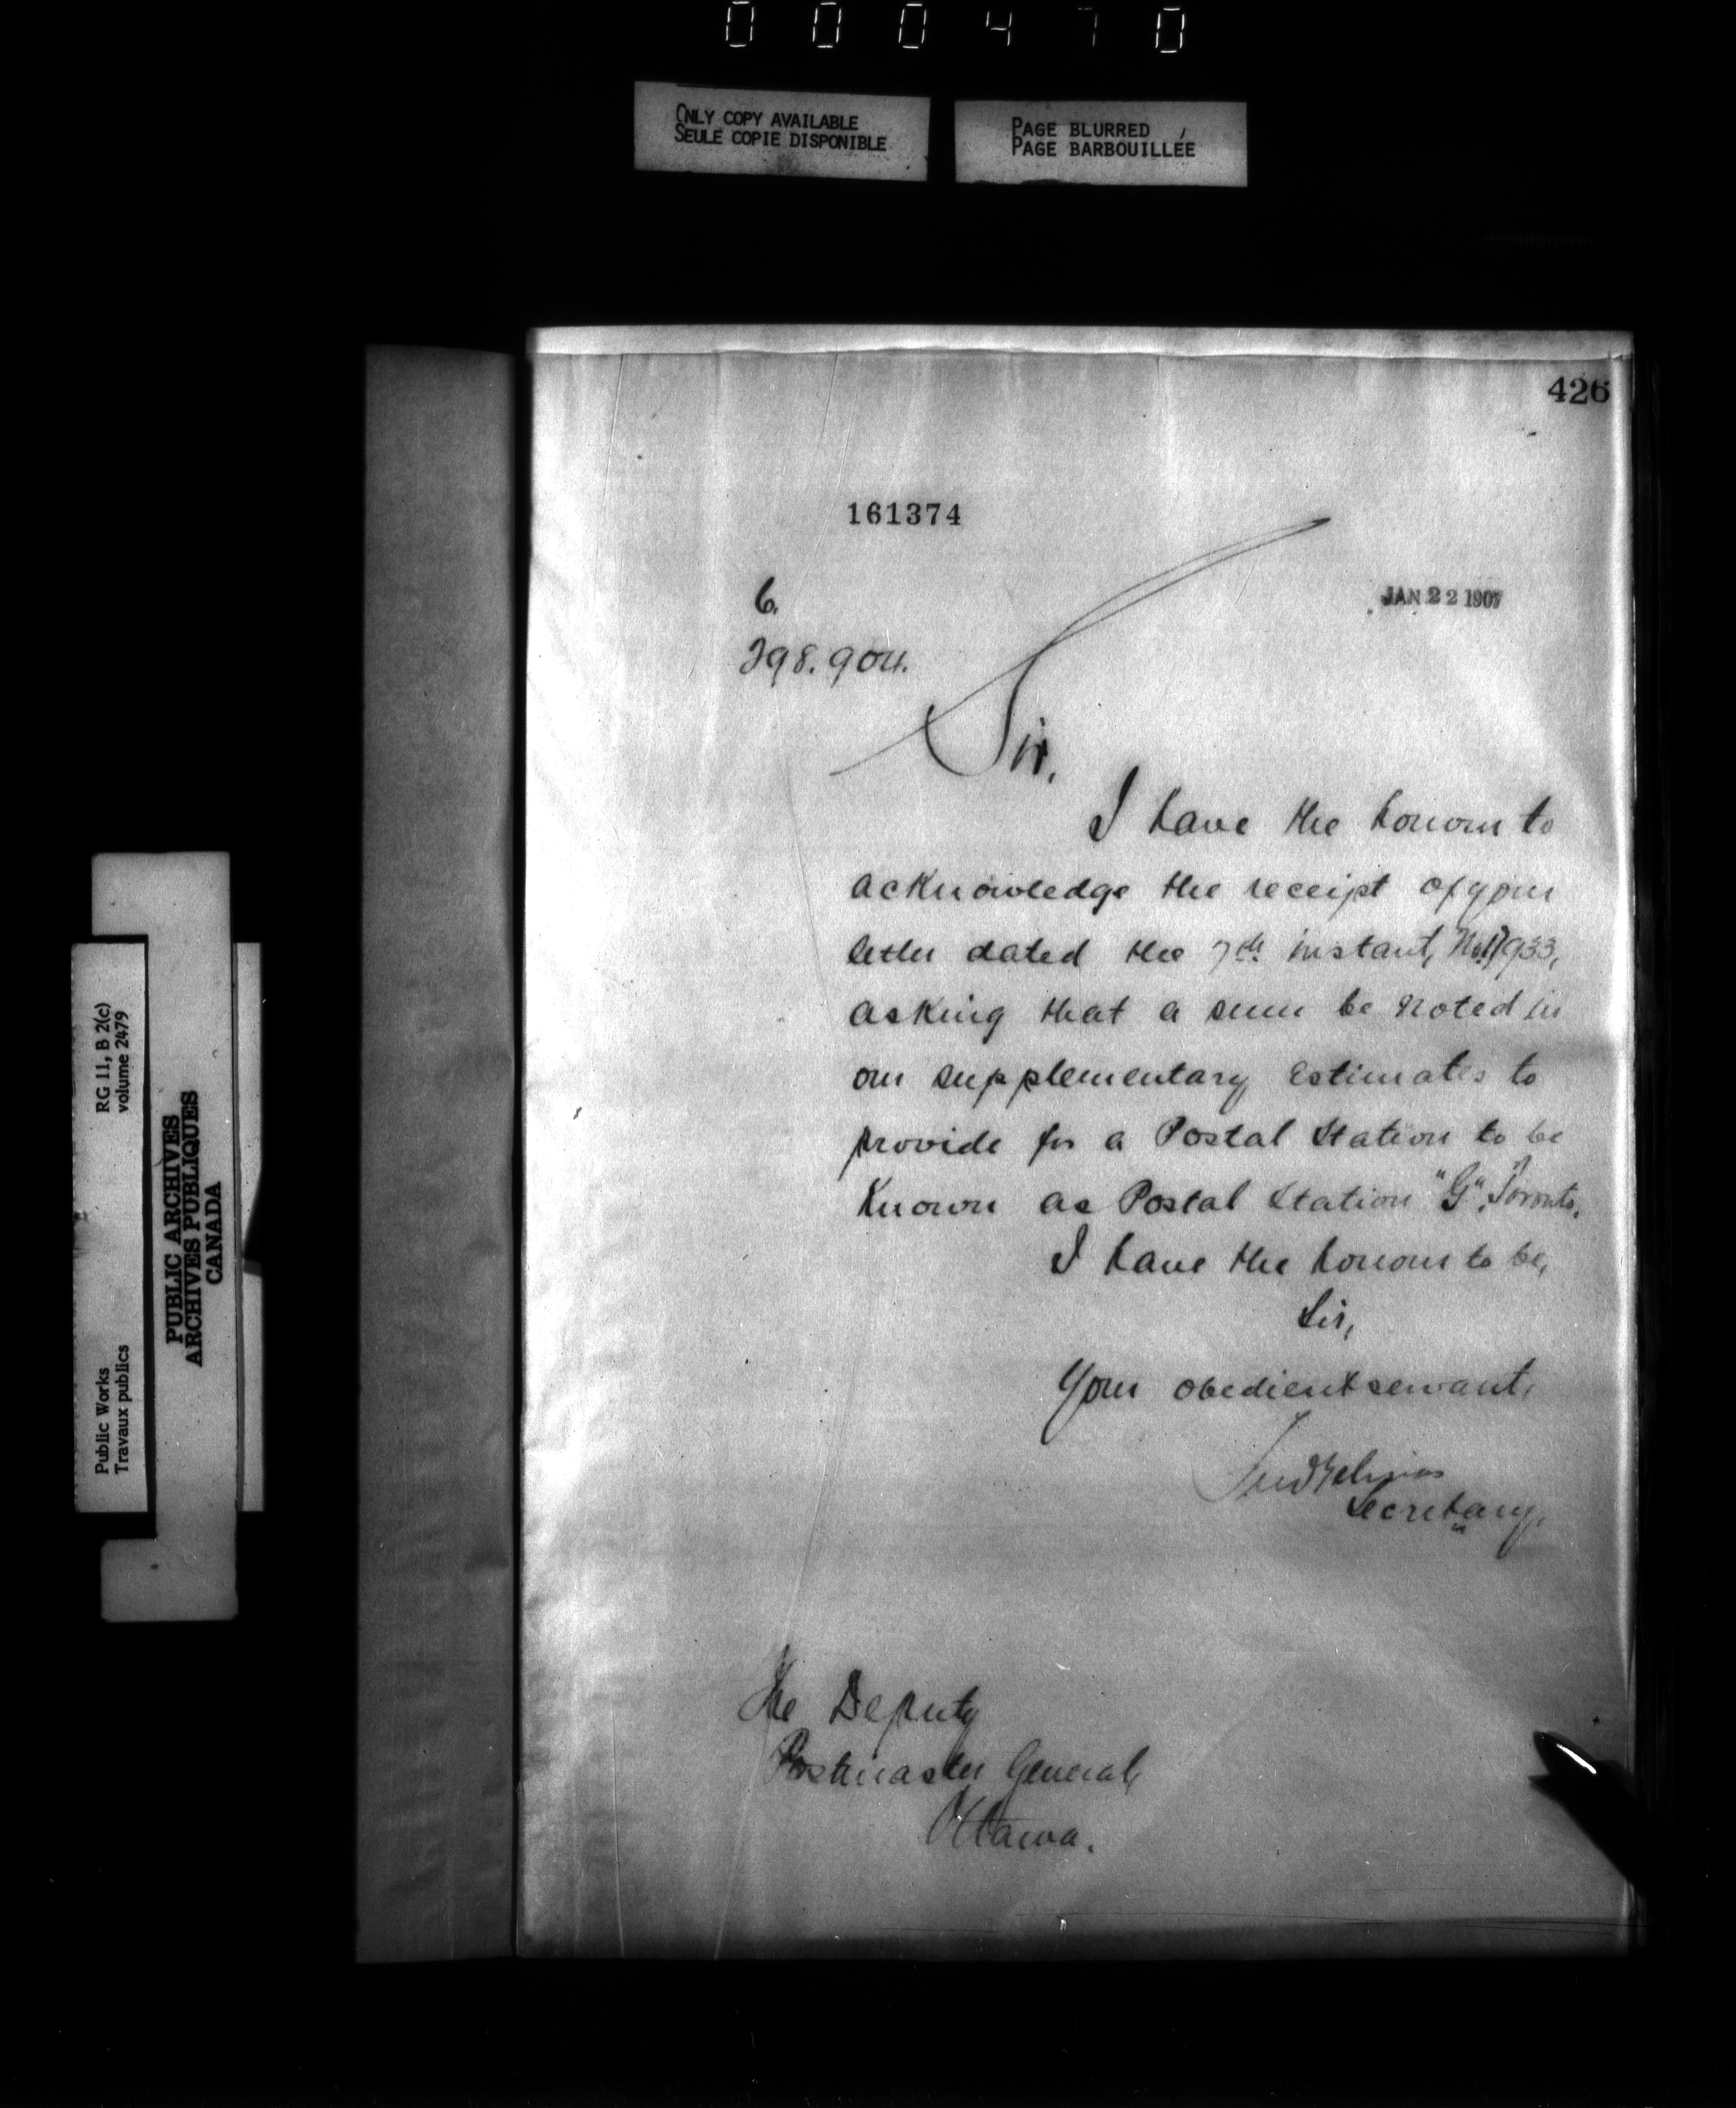 000470
ONLY COPY AVAILABLE
SEULE COPIE DISPONIBLE
PAGE BLURRED
PAGE BARBOUILLÉE
426
161374
6.
JAN 22 1907
298.904.
Sir,
I have the honour to
acknowledge the receipt of your
letter dated the 7th instant,
asking that a sum be noted in
our supplementary estimates to
provide for a Postal Station to be
Known as Postal Station "G", Toronto.
I have the honour to be,
Sir,
Your obedient servant,
Fred Gélinas
Secretary.
The Deputy
Postmaster General,
Ottawa.
Public Works
Travaux publics
RG 11, B 2(c)
volume 2479
PUBLIC ARCHIVES
ARCHIVES PUBLIQUES
CANADA